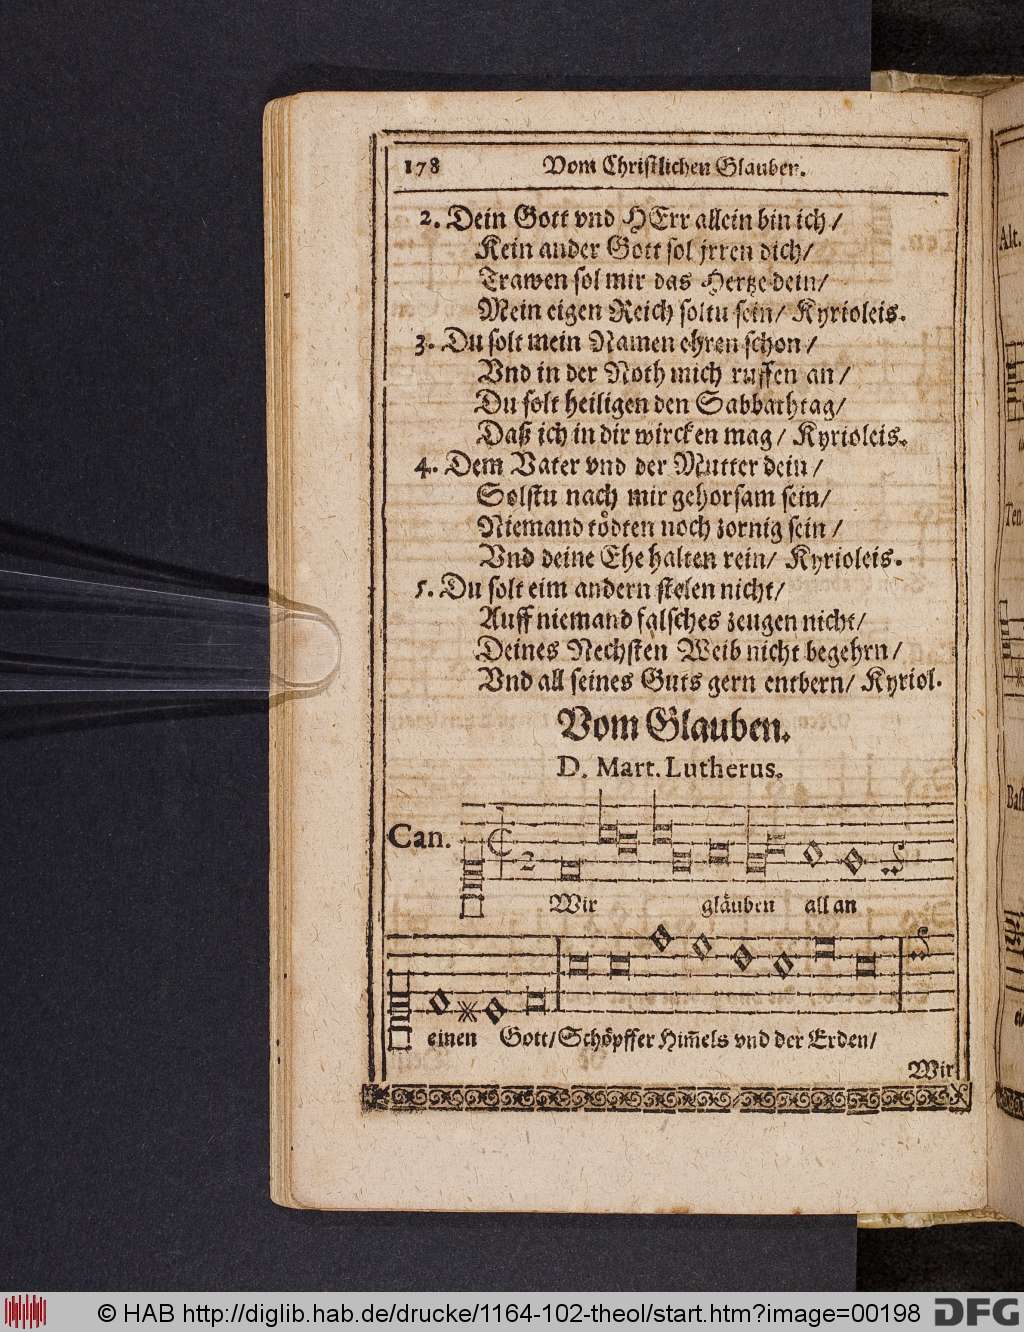 178 Vom Christlichen Glauben.
2. Dein Gott vnd HErr allein bin ich/
Kein ander Gott sol jrren dich/
Trawen sol mir das Hertze dein/
Mein eigen Reich soltu sein/ Kyrioleis.
3. Du solt mein Namen ehren schon/
Vnd in der Noth mich ruffen an/
Du solt heiligen den Sabbathtag/
Daß ich in dir wircken mag/ Kyrioleis.
4. Dem Vater vnd der Mutter dein/
Solstu nach mir gehorsam sein/
Niemand tödten noch zornig sein/
Vnd deine Ehe halten rein/ Kyrioleis.
5. Du solt eim andern stelen nicht/
Auff niemand falsches zeugen nicht/
Deines Nechsten Weib nicht begehrn/
Vnd all seines Guts gern entbern/ Kyriol.
Vom Glauben.
D. Mart. Lutherus.
Can.
2
Wir gläuben all an
einen Gott/ Schöpffer Him̄els vnd der Erden/
Wir
Alt.
Ten
Bass
© HAB http://diglib.hab.de/drucke/1164-102-theol/start.htm?image=00198
DFG